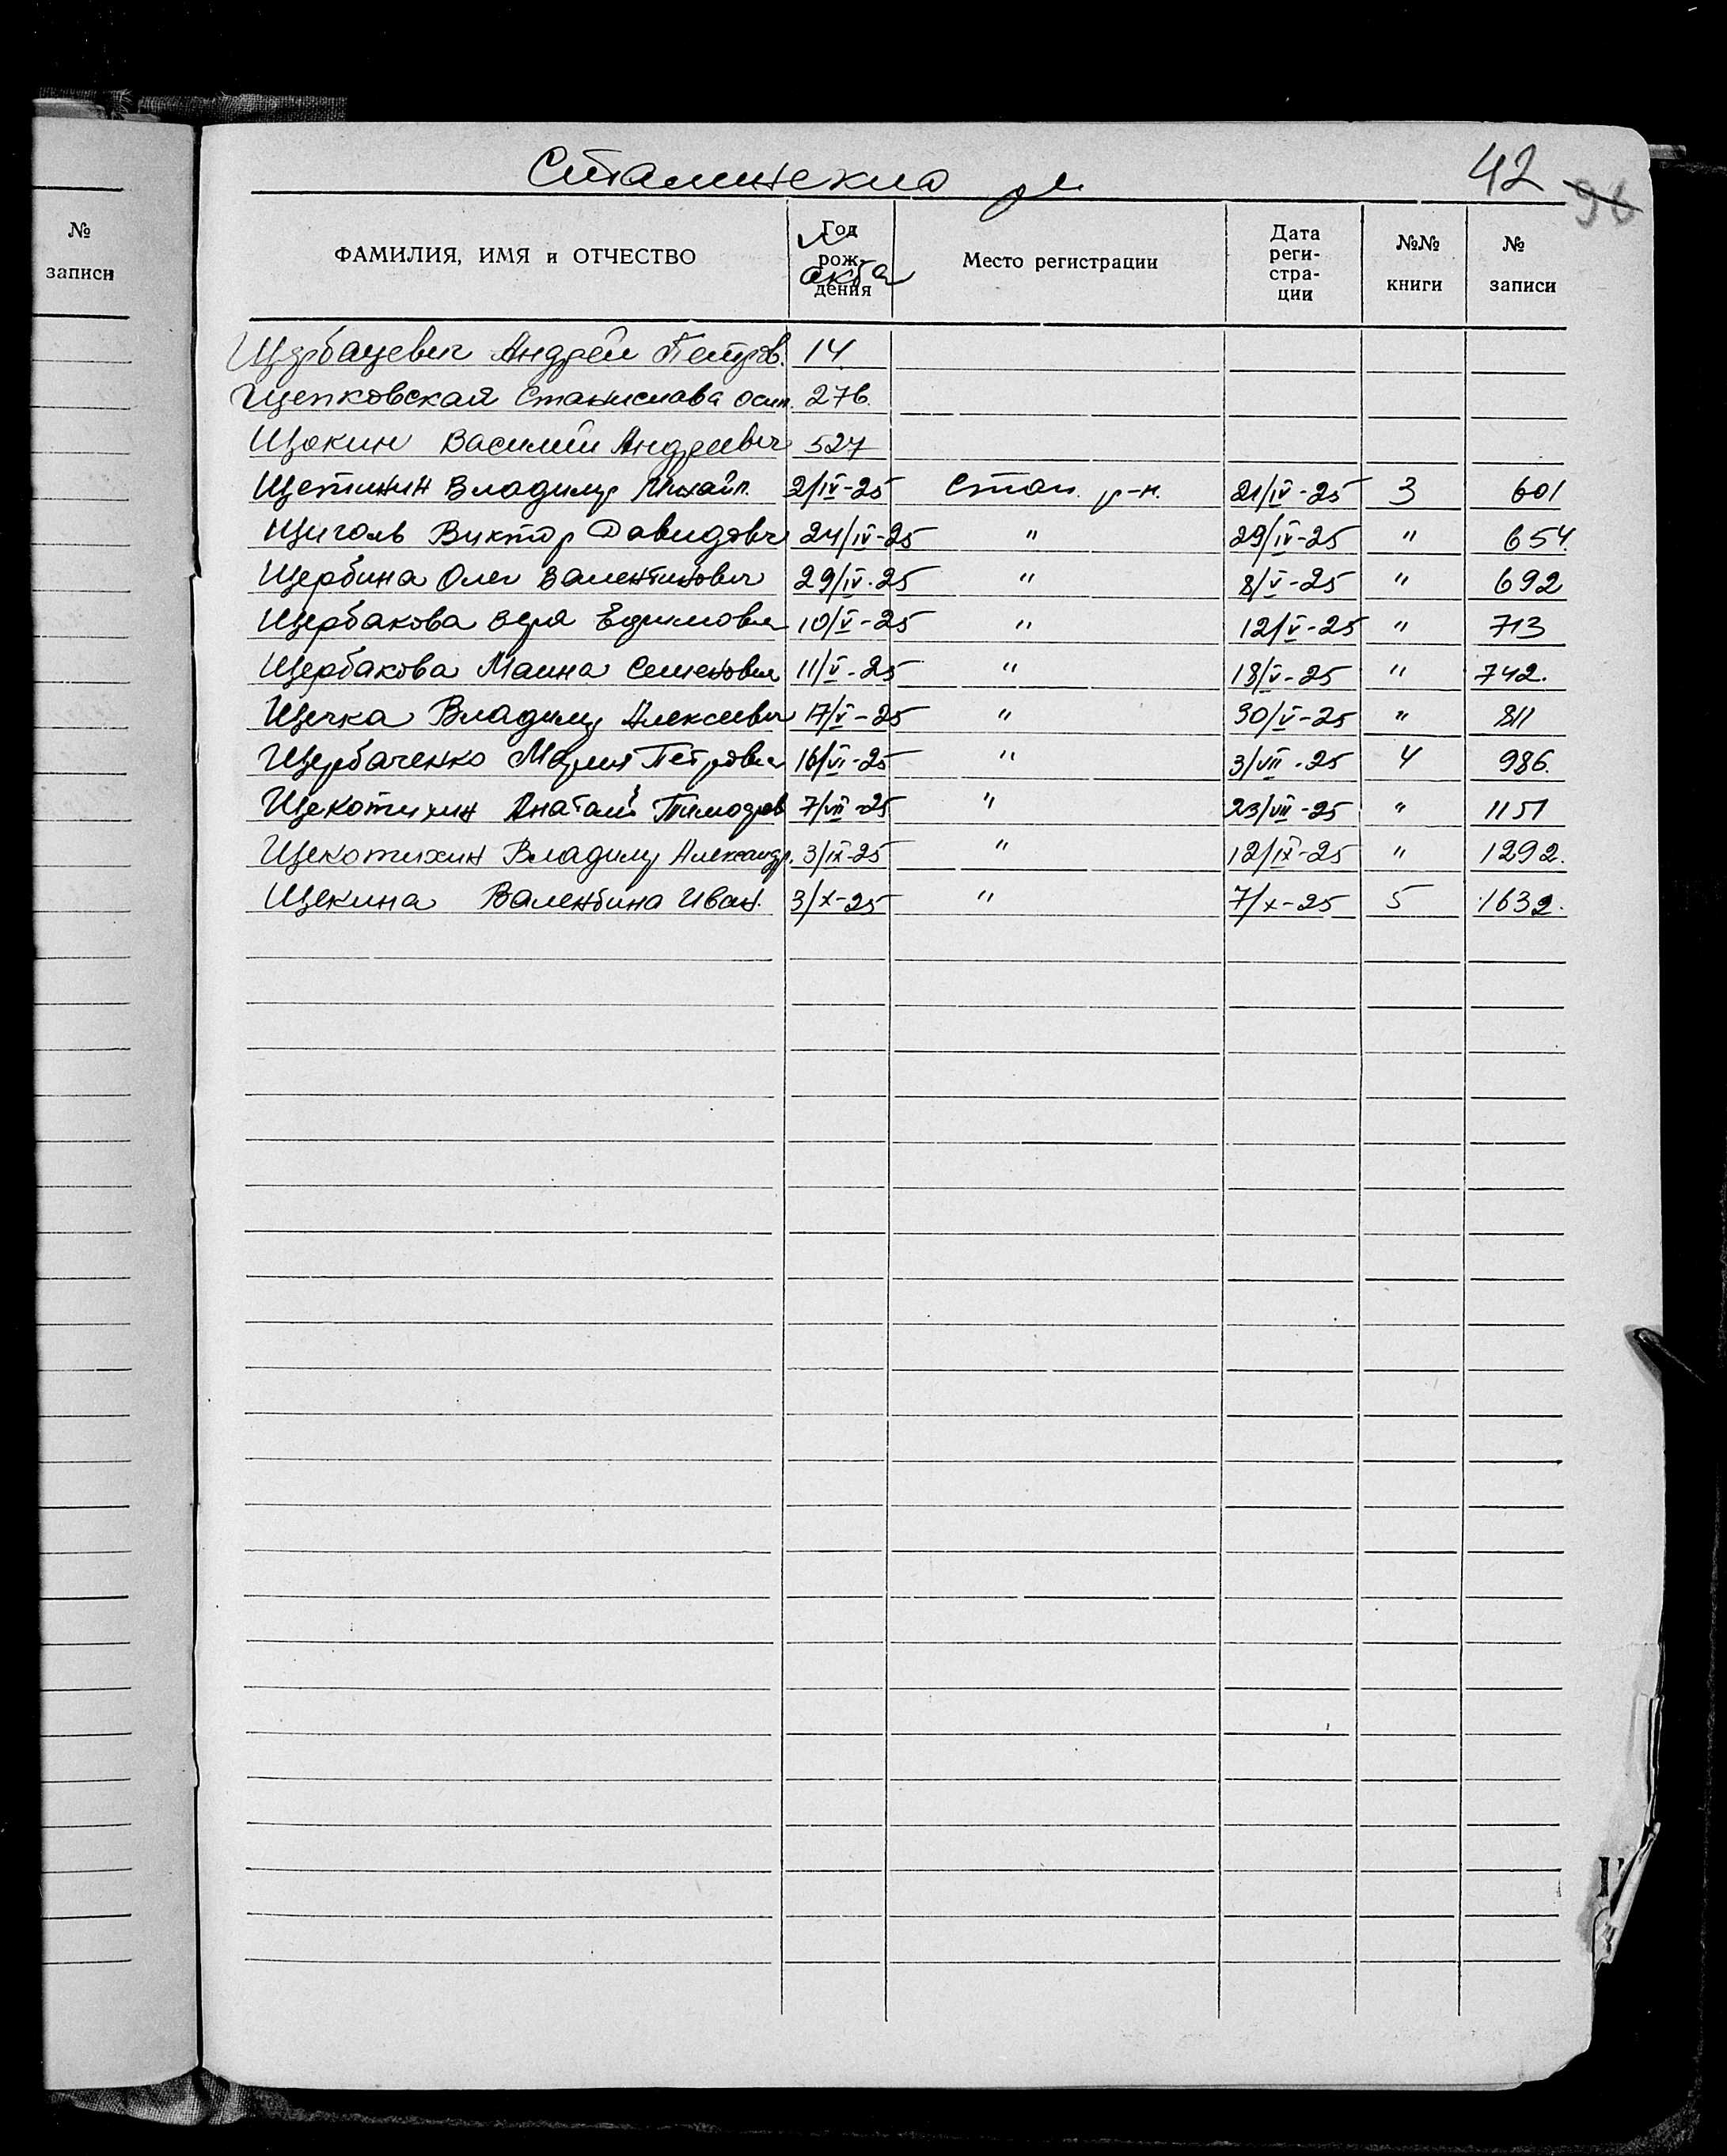 №
записи
42
96
ФАМИЛИЯ, ИМЯ и ОТЧЕСТВО
Год рождения
№ акта
Место регистрации
Дата регистрации
№№ книги
№ записи
Щербацевич Андрей Петров. 14
Щепковская Станислава Осип. 276.
Щокин Василий Андреевич 527
Щетинин Владимир Михайл. 2/IV-25 Стал. р-н. 21/IV-25 3 601
Щиголь Виктор Давидович 24/IV-25 " 29/IV-25 " 654.
Щербина Олег Валентинович 29/IV-25 " 8/V-25 " 692
Щербакова Вера Ефимовна 10/V-25 " 12/V-25 " 713
Щербакова Маина Семеновна 11/V-25 " 18/V-25 " 742.
Щечка Владимир Алексеевич 17/V-25 " 30/V-25 " 811
Щербаченко Мария Петровна 16/VI-25 " 3/VII-25 4 986.
Щекотихин Анатолий Тимофеев 7/VII-25 " 23/VII-25 " 1151
Щекотихин Владимир Александр. 3/IX-25 " 12/IX-25 " 1292.
Щекина Валентина Иван. 3/X-25 " 7/X-25 5 1632.